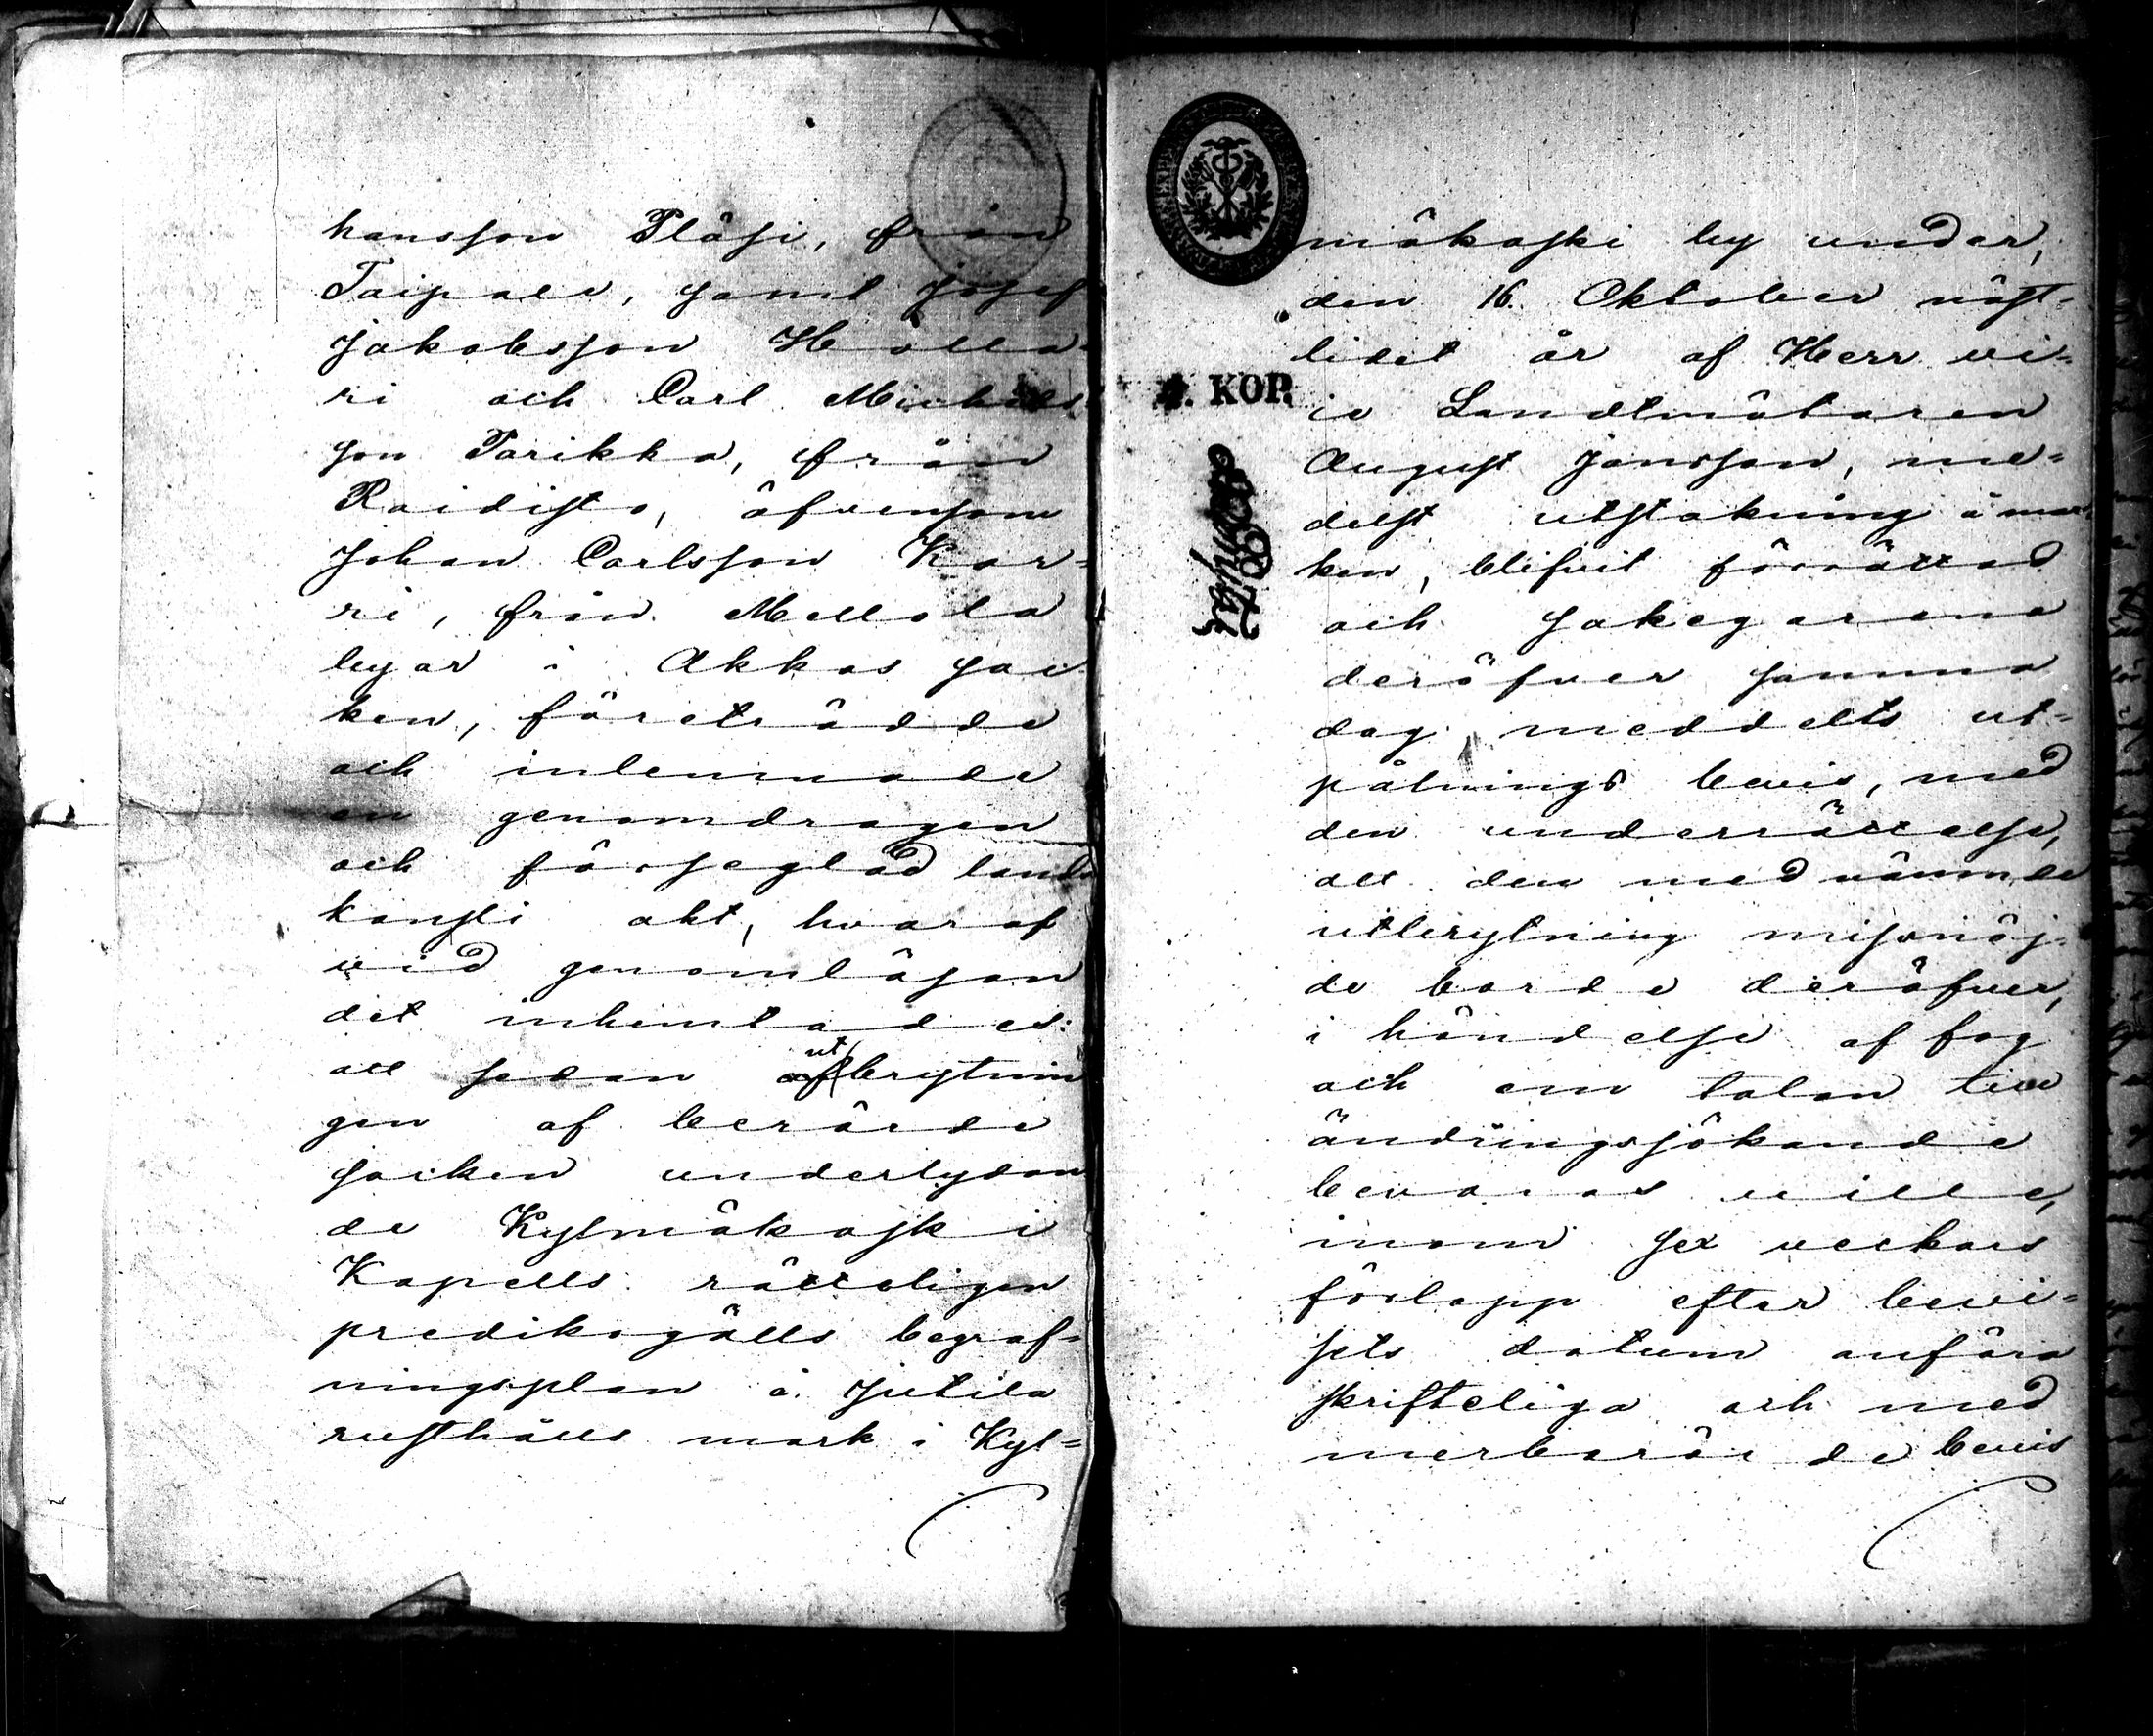 hansson Pläsi, från
Taipale, samt Josef
Jakobsson Hölla-
ri och Carl Michels
son Parikka, från
Roidisto, äfvensom
Johan Carlsson Kar=
ri, från Mellola
byar i Akkas soc
ken, företrädde
och inlemnade
en genomdragen
och förseglad lands
kansli akt, hvaraf
vid genomläsan
det inhemtades:
att sedan utbrytnin
gen af berörde
socken underlydan
de Kylmäkoski
Kapells rätteligen
predikogälls begraf=
ningsplan å Jutila
rusthålls mark i Kyl=
mäkoski by under,
den 16. Oktober näst-
lidet år af Herr vi=
ce Landtmätaren
August Jansson, me=
delst utstakning å mar
ken, blifvit förrättad
och sakegarene
deröfver samma
dag meddelts ut=
pålnings bevis, med
den underrättelse,
att den med nämnde
utbrytning missnöj-
de borde deröfver,
i händelse af fog
och om talan till
ändringssökande
bevaras ville,
inom sex veckors
förlopp efter bevi=
sets datum anföra
skrifteliga och med
merberörde bevis
KOP.